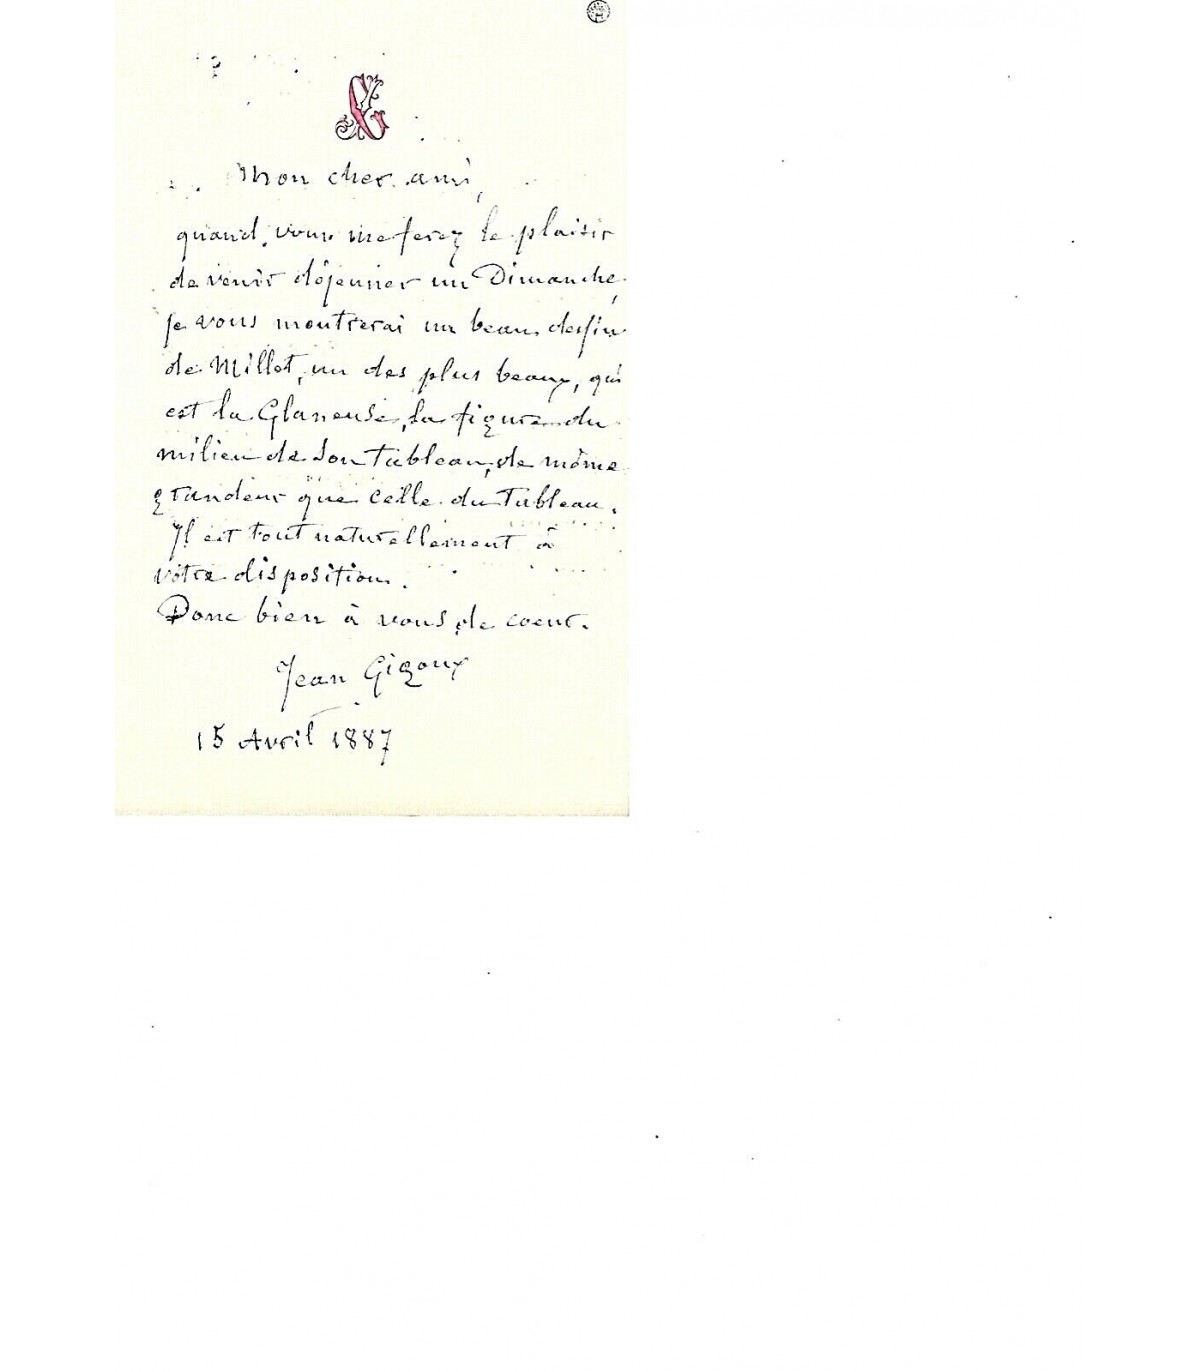 Mon cher ami,
quand vous me ferez le plaisir
de venir déjeuner un Dimanche,
je vous montrerai un beau dessin
de Millet, un des plus beaux, qui
est la Glaneuse, la figure du
milieu de son tableau, de même
grandeur que celle du tableau.
Il est tout naturellement à
votre disposition.
Donc bien à vous de coeur.
Jean Gigoux
15 Avril 1887